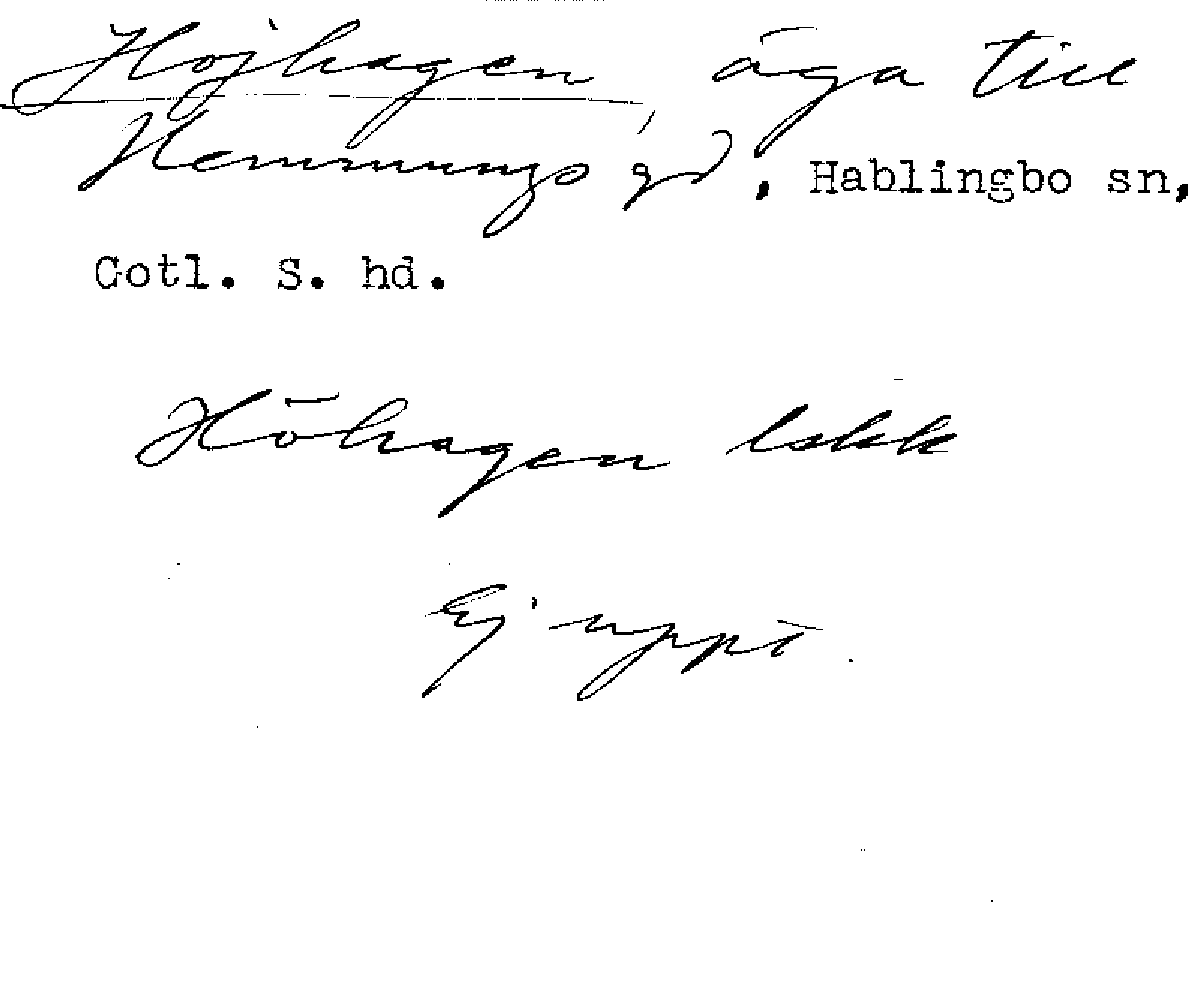 Höjhagen, äga till
Hemmungs gd, Hablingbo sn,
Gotl. S. hd.
Höhagen lskk
Ej uppt.